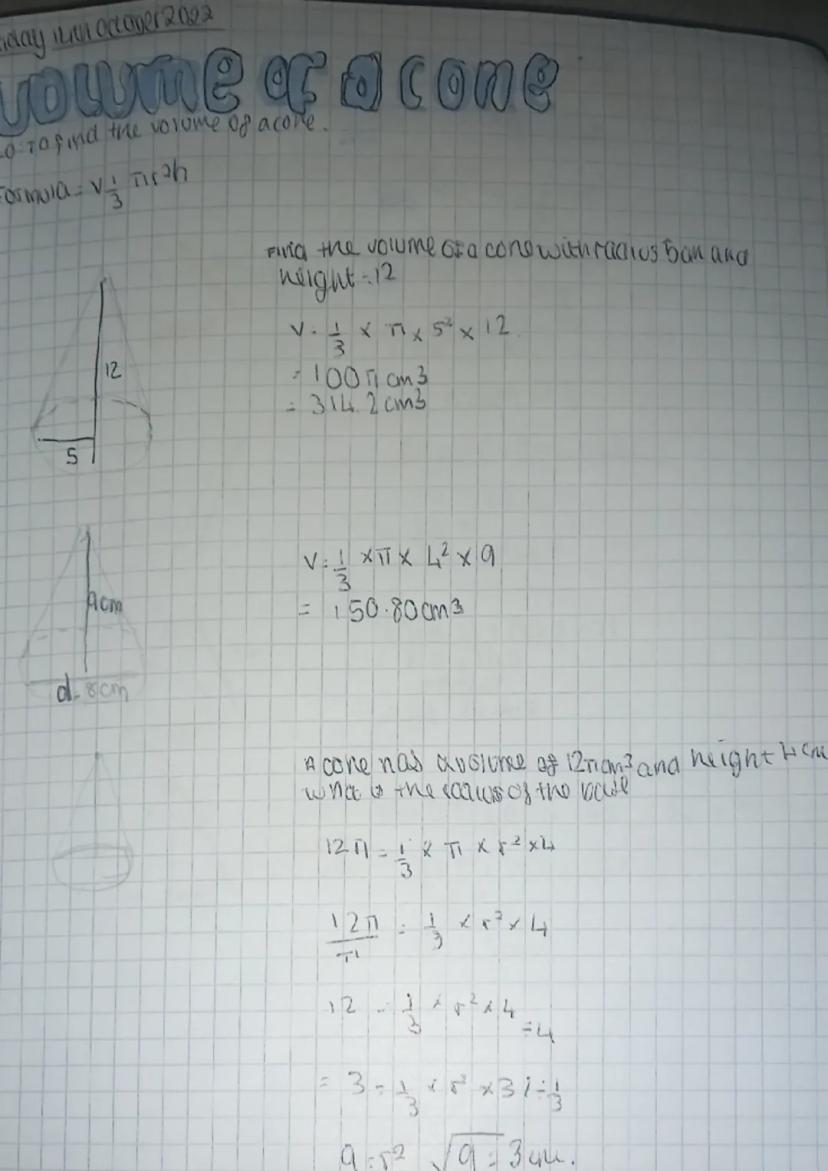 october 2022
volume of a cone
to find the volume of a cone.
Formula = V 1/3 πr2h
Find the volume of a cone with radius 5cm and
height = 12
V = 1/3 × π × 5² × 12
= 100π cm3
= 314.2cm3
12
5
V = 1/3 × π × 4² × 9
= 150.80cm3
9cm
d = 8cm
A cone has a volume of 12π cm³ and height 4cm
what is the radius of the base
12π = 1/3 × π × r² × 4
12π/π = 1/3 × r² × 4
12 = 1/3 × r² × 4
÷4
= 3 = 1/3 × r² × 3 ÷ 1/3
9 = r² √9 = 3cm.